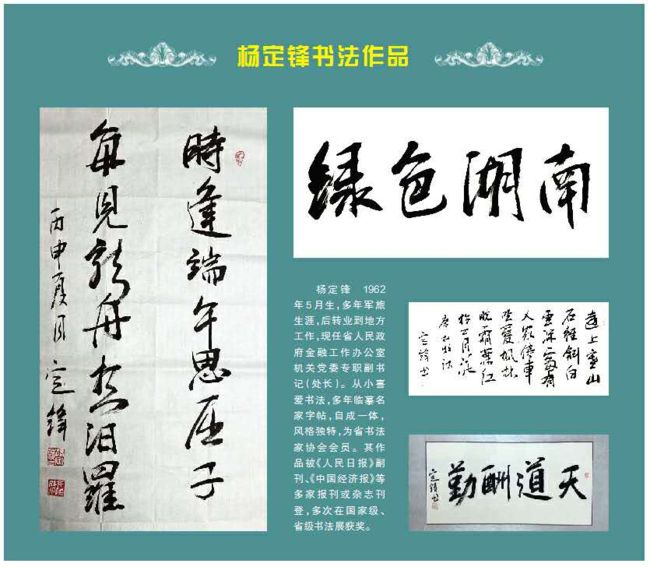 杨定锋书法作品
時逢端午思屈子
每見龍舟想汨羅
丙申夏月 定鋒
绿色湖南
杨定锋 1962
年5月生，多年军旅
生涯，后转业到地方
工作，现任省人民政
府金融工作办公室
机关党委专职副书
记（处长）。从小喜
爱书法，多年临摹名
家字帖，自成一体，
风格独特，为省书法
家协会会员。其作
品被《人民日报》副
刊、《中国经济报》等
多家报刊或杂志刊
登，多次在国家级、
省级书法展获奖。
遠上寒山
石徑斜白
雲深處有
人家停車
坐愛楓林
晚霜葉紅
於二月花
定鋒书
天道酬勤
定鋒书